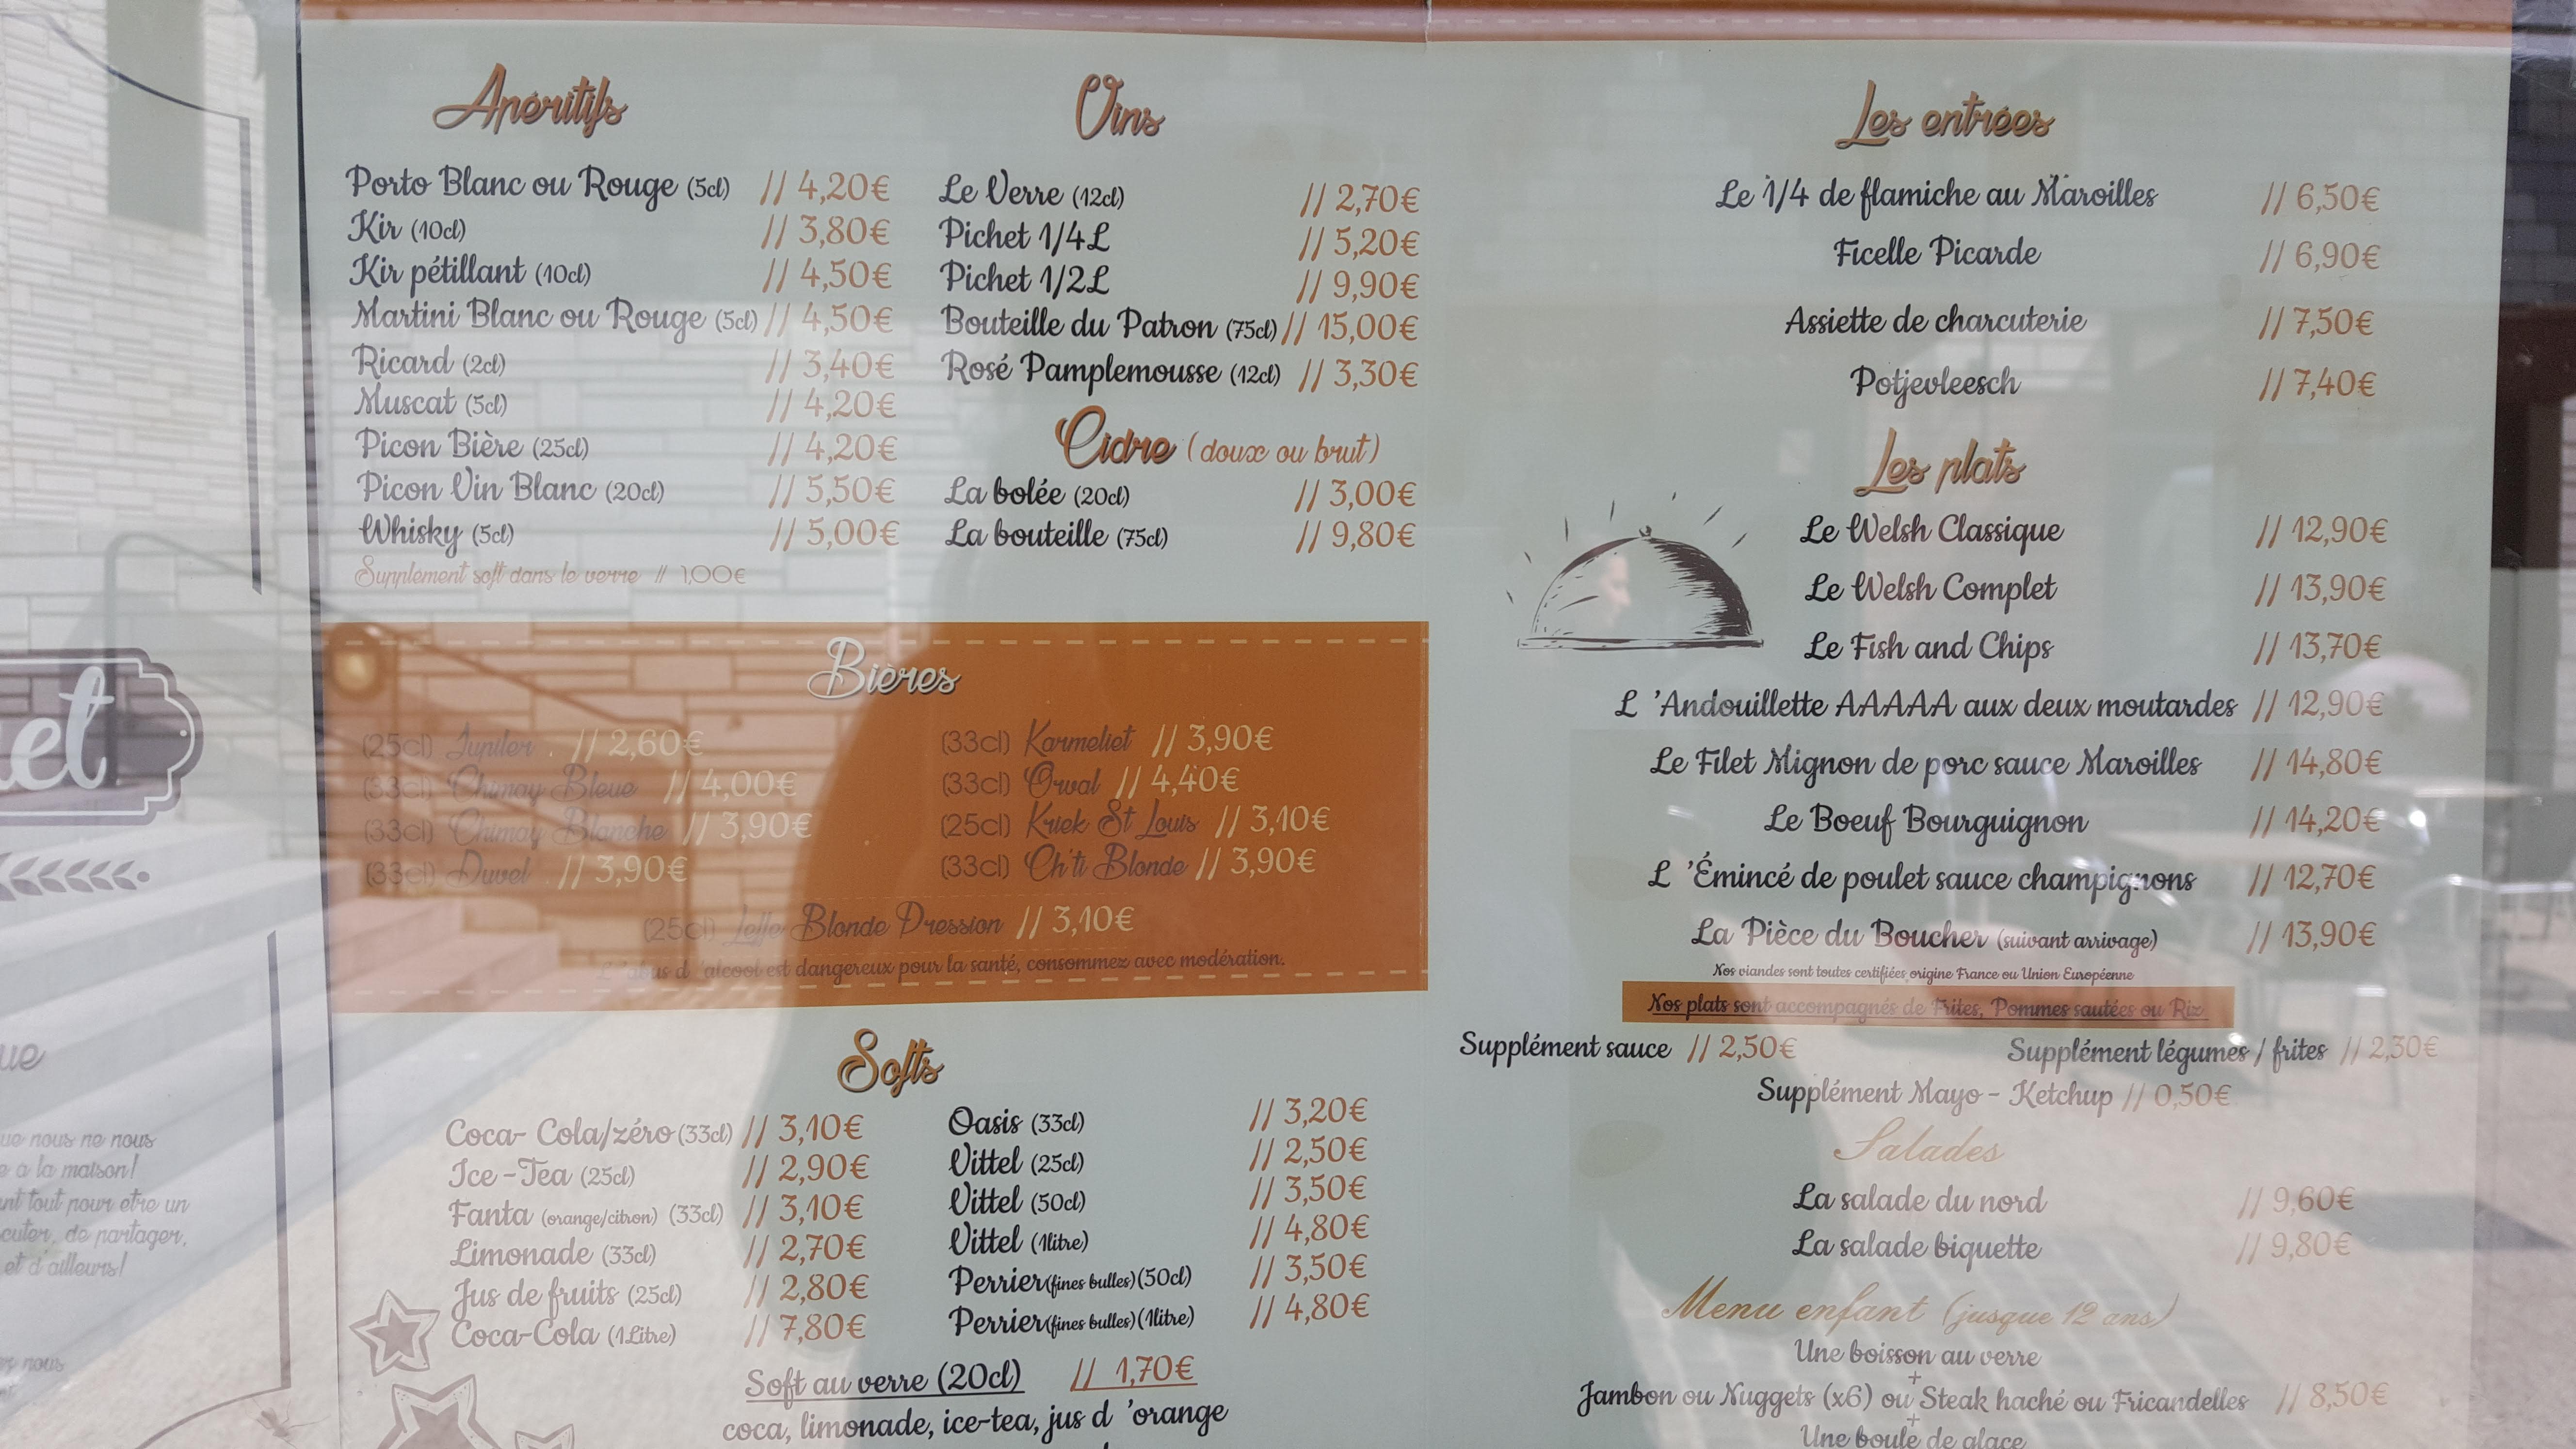 et
ue
ue nous ne nous
e à la maison!
ant tout pour etre un
cuter, de partager,
et d'ailleurs!
er nous
Apéritifs
Porto Blanc ou Rouge (5cl) // 4,20€
Kir (10cl) // 3,80€
Kir pétillant (10cl) // 4,50€
Martini Blanc ou Rouge (5cl) // 4,50€
Ricard (2cl) // 3,40€
Muscat (5cl) // 4,20€
Picon Bière (25cl) // 4,20€
Picon Vin Blanc (20cl) // 5,50€
Whisky (5cl) // 5,00€
Supplément soft dans le verre // 1,00€
Vins
Le Verre (12cl) // 2,70€
Pichet 1/4L // 5,20€
Pichet 1/2L // 9,90€
Bouteille du Patron (75cl) // 15,00€
Rosé Pamplemousse (12cl) // 3,30€
Cidre (doux ou brut)
La bolée (20cl) // 3,00€
La bouteille (75cl) // 9,80€
Bières
(25cl) Jupiler . // 2,60€
(33cl) Chimay Bleue // 4,00€
(33cl) Chimay Blanche // 3,90€
(33cl) Duvel . // 3,90€
(33cl) Karmeliet // 3,90€
(33cl) Orval // 4,40€
(25cl) Kriek St Louis // 3,10€
(33cl) Ch'ti Blonde // 3,90€
(25cl) Leffe Blonde Pression // 3,10€
L 'abus d 'alcool est dangereux pour la santé, consommez avec modération.
Softs
Coca- Cola/zéro (33cl) // 3,10€
Ice -Tea (25cl) // 2,90€
Fanta (orange/citron) (33cl) // 3,10€
Limonade (33cl) // 2,70€
Jus de fruits (25cl) // 2,80€
Coca-Cola (1Litre) // 7,80€
Oasis (33cl) // 3,20€
Vittel (25cl) // 2,50€
Vittel (50cl) // 3,50€
Vittel (1litre) // 4,80€
Perrier(fines bulles)(50cl) // 3,50€
Perrier(fines bulles)(1litre) // 4,80€
Soft au verre (20cl) // 1,70€
coca, limonade, ice-tea, jus d 'orange
Les entrées
Le 1/4 de flamiche au Maroilles // 6,50€
Ficelle Picarde // 6,90€
Assiette de charcuterie // 7,50€
Potjevleesch // 7,40€
Les plats
Le Welsh Classique // 12,90€
Le Welsh Complet // 13,90€
Le Fish and Chips // 13,70€
L 'Andouillette AAAAA aux deux moutardes // 12,90€
Le Filet Mignon de porc sauce Maroilles // 14,80€
Le Boeuf Bourguignon // 14,20€
L 'Émincé de poulet sauce champignons // 12,70€
La Pièce du Boucher (suivant arrivage) // 13,90€
Nos viandes sont toutes certifiées origine France ou Union Européenne
Nos plats sont accompagnés de Frites, Pommes sautées ou Riz
Supplément sauce // 2,50€ Supplément légumes / frites // 2,30€
Supplément Mayo - Ketchup // 0,50€
Salades
La salade du nord // 9,60€
La salade biquette // 9,80€
Menu enfant (jusque 12 ans)
Une boisson au verre
+
Jambon ou Nuggets (x6) ou Steak haché ou Fricandelles // 8,50€
+
Une boule de glace